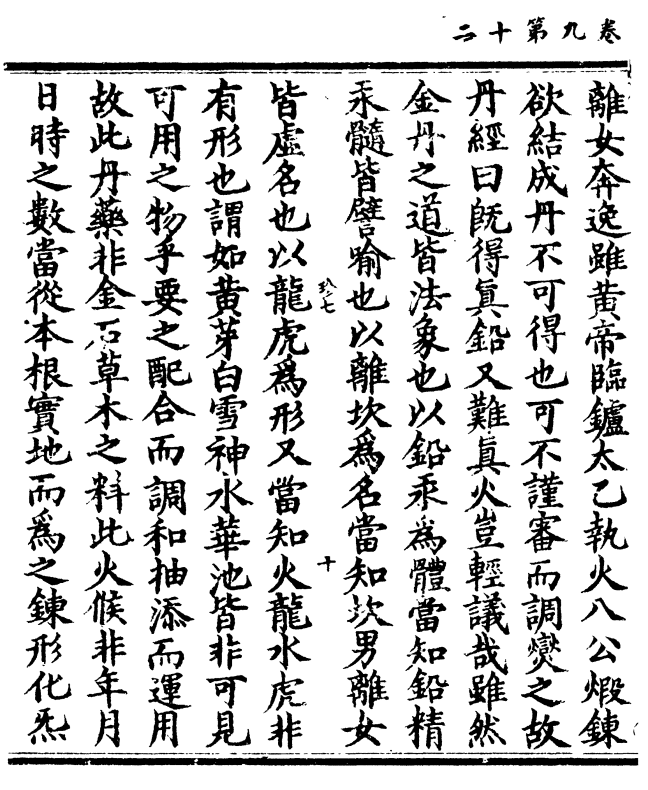 卷九第十二
離女奔逸雖黃帝臨鑪太乙執火八公煅鍊
欲結成丹不可得也可不謹審而調燮之故
丹經曰既得眞鉛又難眞火豈輕議哉雖然
金丹之道皆法象也以鉛汞爲體當知鉛精
汞髓皆譬喻也以離坎爲名當知坎男離女
玅七
十
皆虛名也以龍虎爲形又當知火龍水虎非
有形也謂如黃芽白雪神水華池皆非可見
可用之物乎要之配合而調和抽添而運用
故此丹藥非金石草木之料此火候非年月
日時之數當從本根實地而爲之鍊形化炁